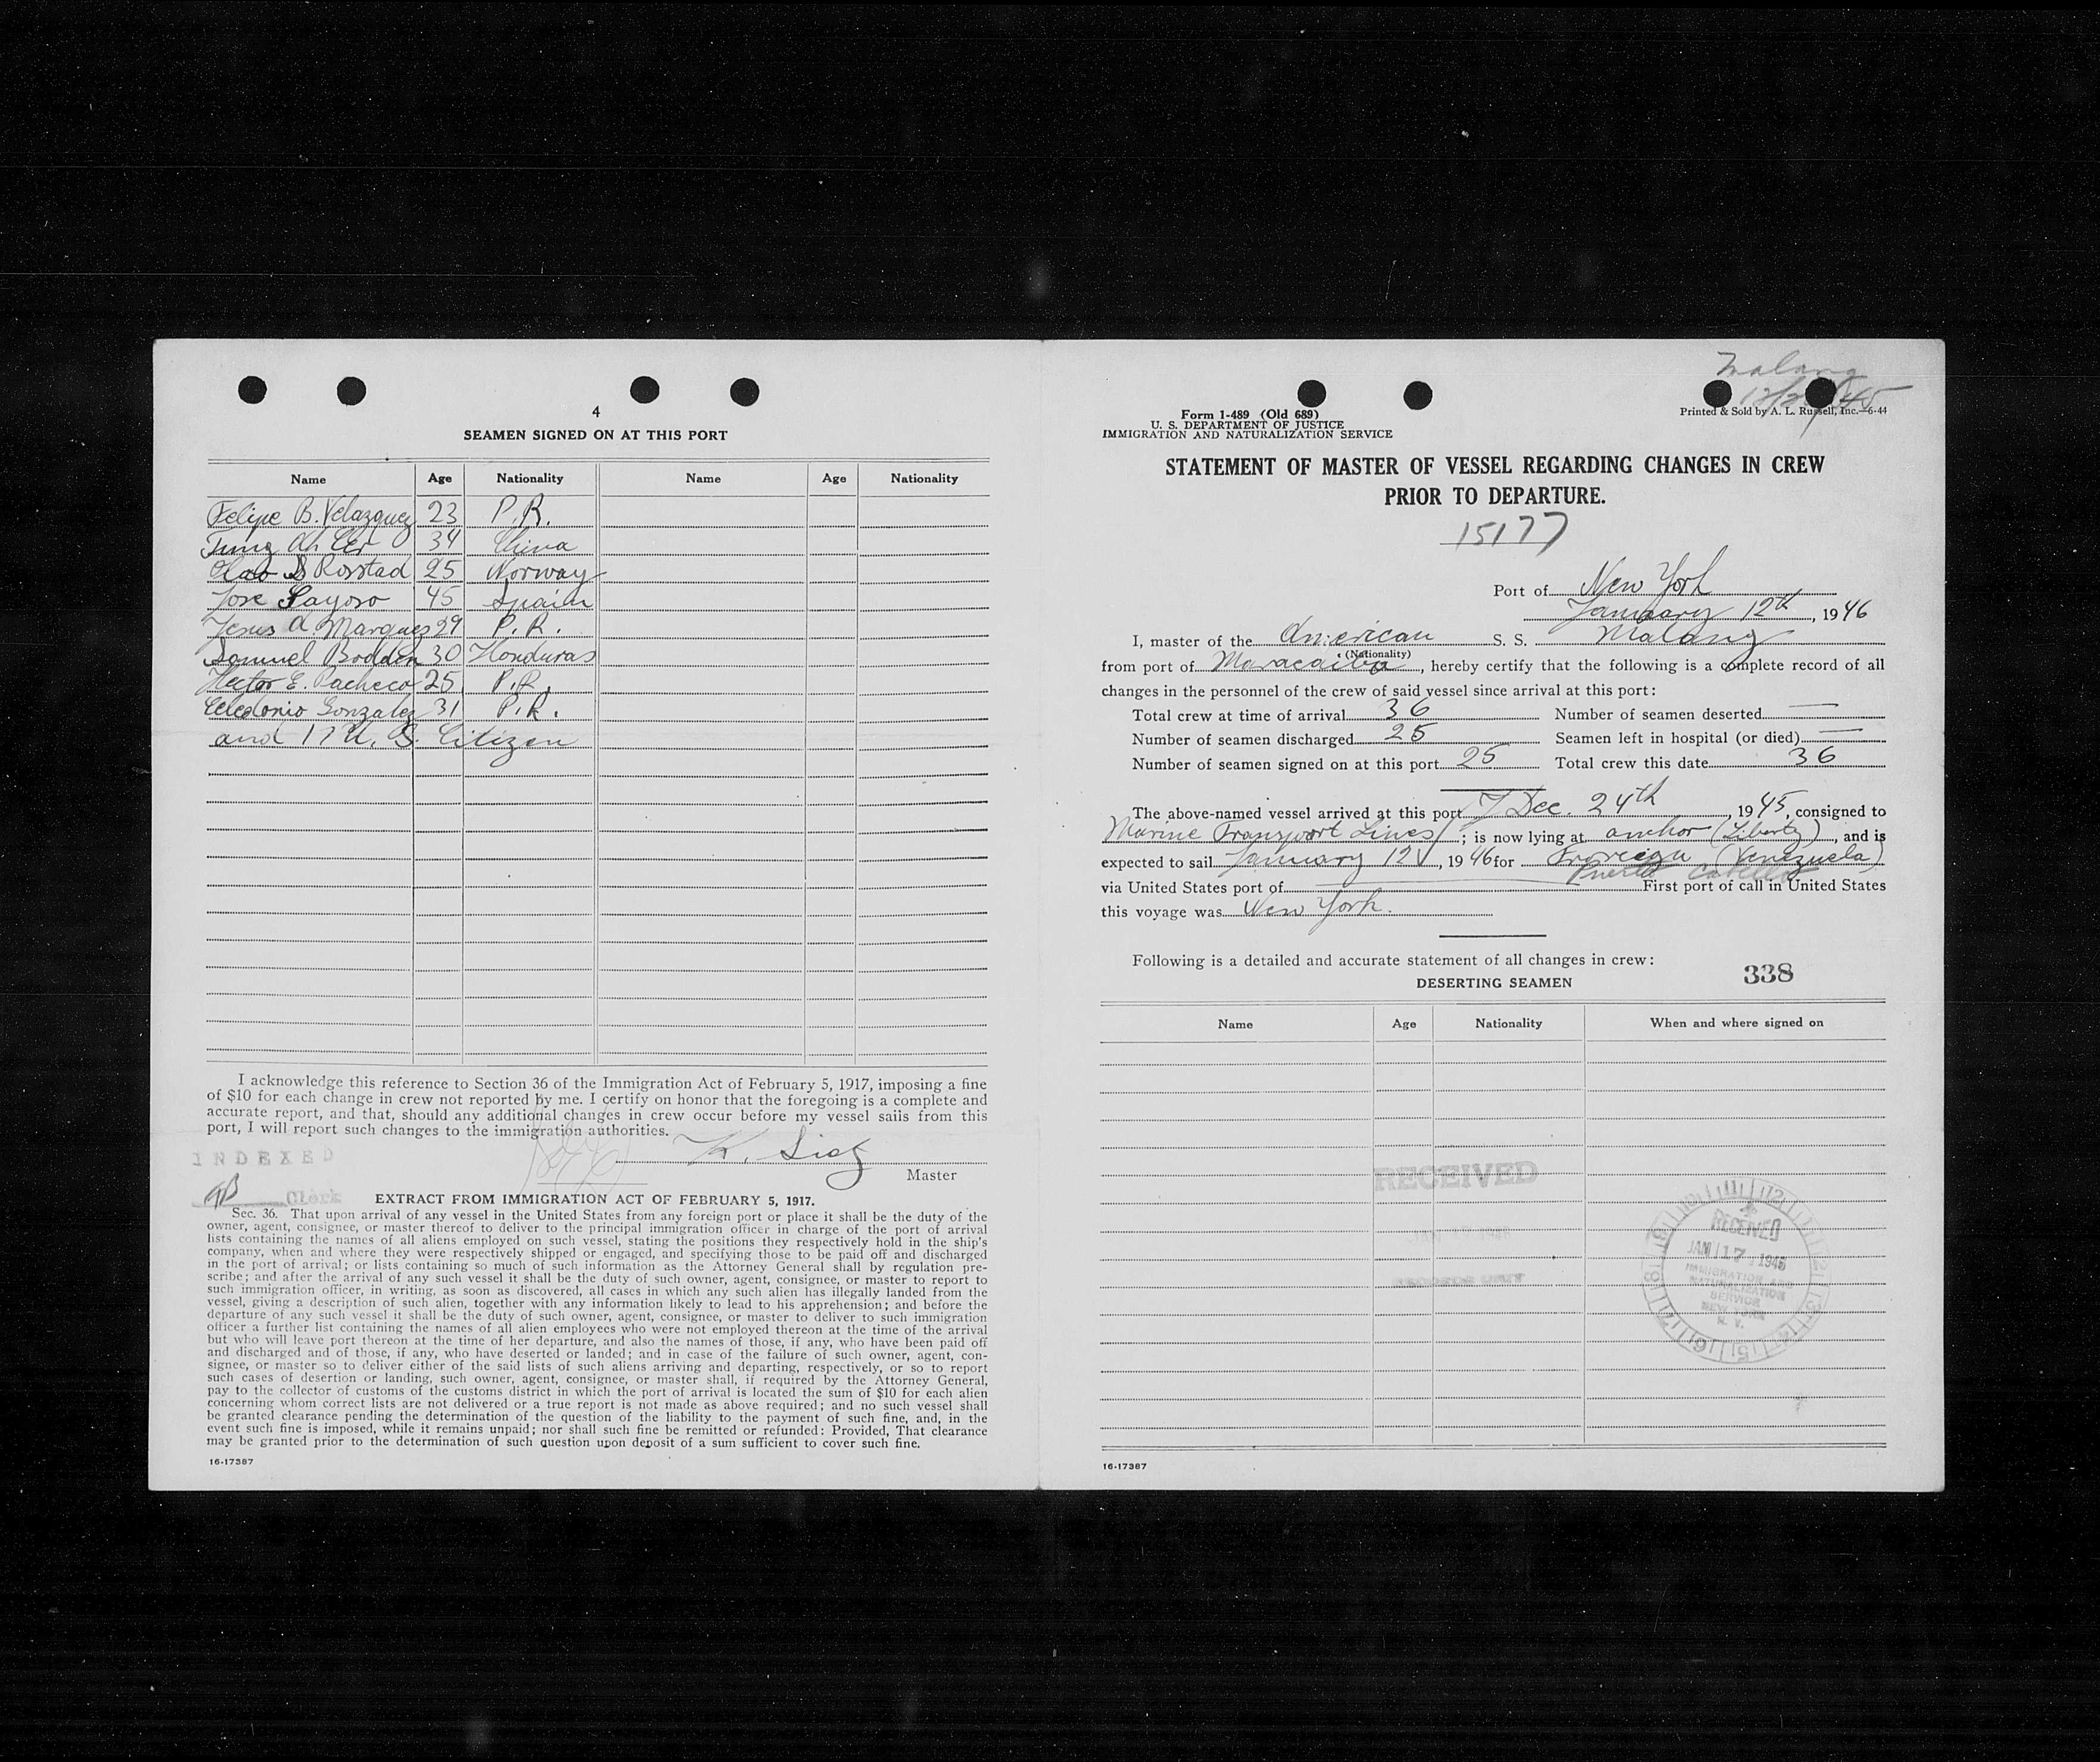 4
SEAMEN SIGNED ON AT THIS PORT
Name Age Nationality Name Age Nationality
Felipe B. Velazquez 23 P.R.
Tung Ah 34 China
Olav S Rosstad 25 Norway
Jose Payoso 45 Spain
Jesus A. Marquez 29 P.R.
Samuel Bodden 30 Honduras
Hector E. Pacheco 25 P.R.
Celedonio Gonzalez 31 P.R.
and 17 U.S. Citizen
I acknowledge this reference to Section 36 of the Immigration Act of February 5, 1917, imposing a fine
of $10 for each change in crew not reported by me. I certify on honor that the foregoing is a complete and
accurate report, and that, should any additional changes in crew occur before my vessel sails from this
port, I will report such changes to the immigration authorities.
K.
Master
INDEXED
Clerk
EXTRACT FROM IMMIGRATION ACT OF FEBRUARY 5, 1917.
Sec. 36. That upon arrival of any vessel in the United States from any foreign port or place it shall be the duty of the
owner, agent, consignee, or master thereof to deliver to the principal immigration officer in charge of the port of arrival
lists containing the names of all aliens employed on such vessel, stating the positions they respectively hold in the ship's
company, when and where they were respectively shipped or engaged, and specifying those to be paid off and discharged
in the port of arrival; or lists containing so much of such information as the Attorney General shall by regulation pre-
scribe; and after the arrival of any such vessel it shall be the duty of such owner, agent, consignee, or master to report to
such immigration officer, in writing, as soon as discovered, all cases in which any such alien has illegally landed from the
vessel, giving a description of such alien, together with any information likely to lead to his apprehension; and before the
departure of any such vessel it shall be the duty of such owner, agent, consignee, or master to deliver to such immigration
officer a further list containing the names of all alien employees who were not employed thereon at the time of the arrival
but who will leave port thereon at the time of her departure, and also the names of those, if any, who have been paid off
and discharged and of those, if any, who have deserted or landed; and in case of the failure of such owner, agent, con-
signee, or master so to deliver either of the said lists of such aliens arriving and departing, respectively, or so to report
such cases of desertion or landing, such owner, agent, consignee, or master shall, if required by the Attorney General,
pay to the collector of customs of the customs district in which the port of arrival is located the sum of $10 for each alien
concerning whom correct lists are not delivered or a true report is not made as above required; and no such vessel shall
be granted clearance pending the determination of the question of the liability to the payment of such fine, and, in the
event such fine is imposed, while it remains unpaid; nor shall such fine be remitted or refunded: Provided, That clearance
may be granted prior to the determination of such question upon deposit of a sum sufficient to cover such fine.
16-17387
Malang
Form 1-489 (Old 689)
U. S. DEPARTMENT OF JUSTICE
IMMIGRATION AND NATURALIZATION SERVICE
Printed & Sold by A. L. Russell, Inc.—6-44
STATEMENT OF MASTER OF VESSEL REGARDING CHANGES IN CREW
PRIOR TO DEPARTURE.
15177
Port of New York
January 12th, 1946
I, master of the American S. S. Malang
(Nationality)
from port of Maracaibo, hereby certify that the following is a complete record of all
changes in the personnel of the crew of said vessel since arrival at this port:
Total crew at time of arrival 36 Number of seamen deserted —
Number of seamen discharged 25 Seamen left in hospital (or died) —
Number of seamen signed on at this port 25 Total crew this date 36
The above-named vessel arrived at this port Dec. 24th, 1945, consigned to
Marine Transport Lines; is now lying at anchor (Liberty), and is
expected to sail January 12, 1946 for (Venezuela)
Puerto Cabello
via United States port of — First port of call in United States
this voyage was New York.
Following is a detailed and accurate statement of all changes in crew:
338
DESERTING SEAMEN
Name Age Nationality When and where signed on
RECEIVED
RECORDS UNIT
RECEIVED
JAN 17 1946
IMMIGRATION AND
NATURALIZATION
SERVICE
NEW YORK
N. Y.
16-17387